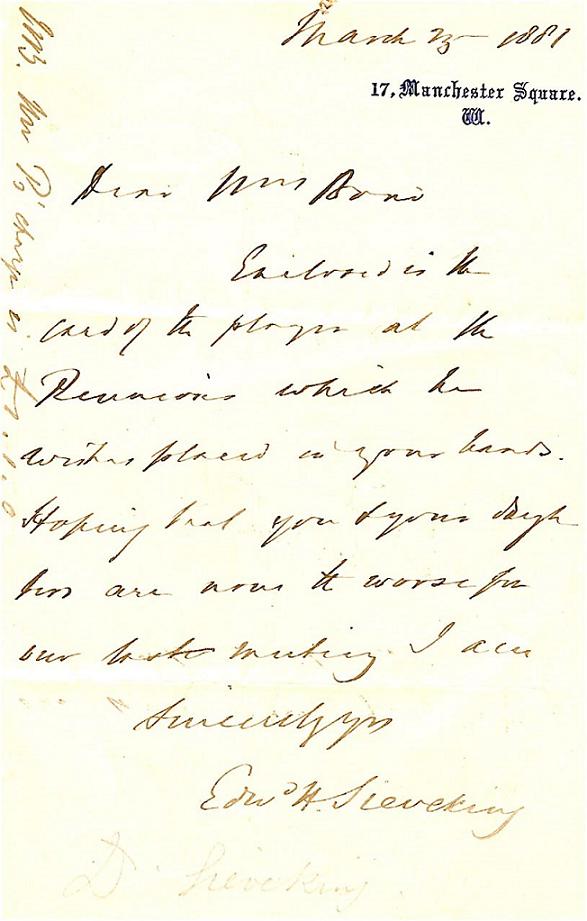 March 25 1881
17, Manchester Square.
W.
Dear Mrs
Enclosed is the
card of the player at the
Reunions which he
wishes placed in your hands.
Hoping that you & your daugh
ters are none the worse for
our last meeting I am
Sincerely yrs
Edwd H. Sieveking
Dr Sieveking
NB. Mr P's charge is £1.1.0